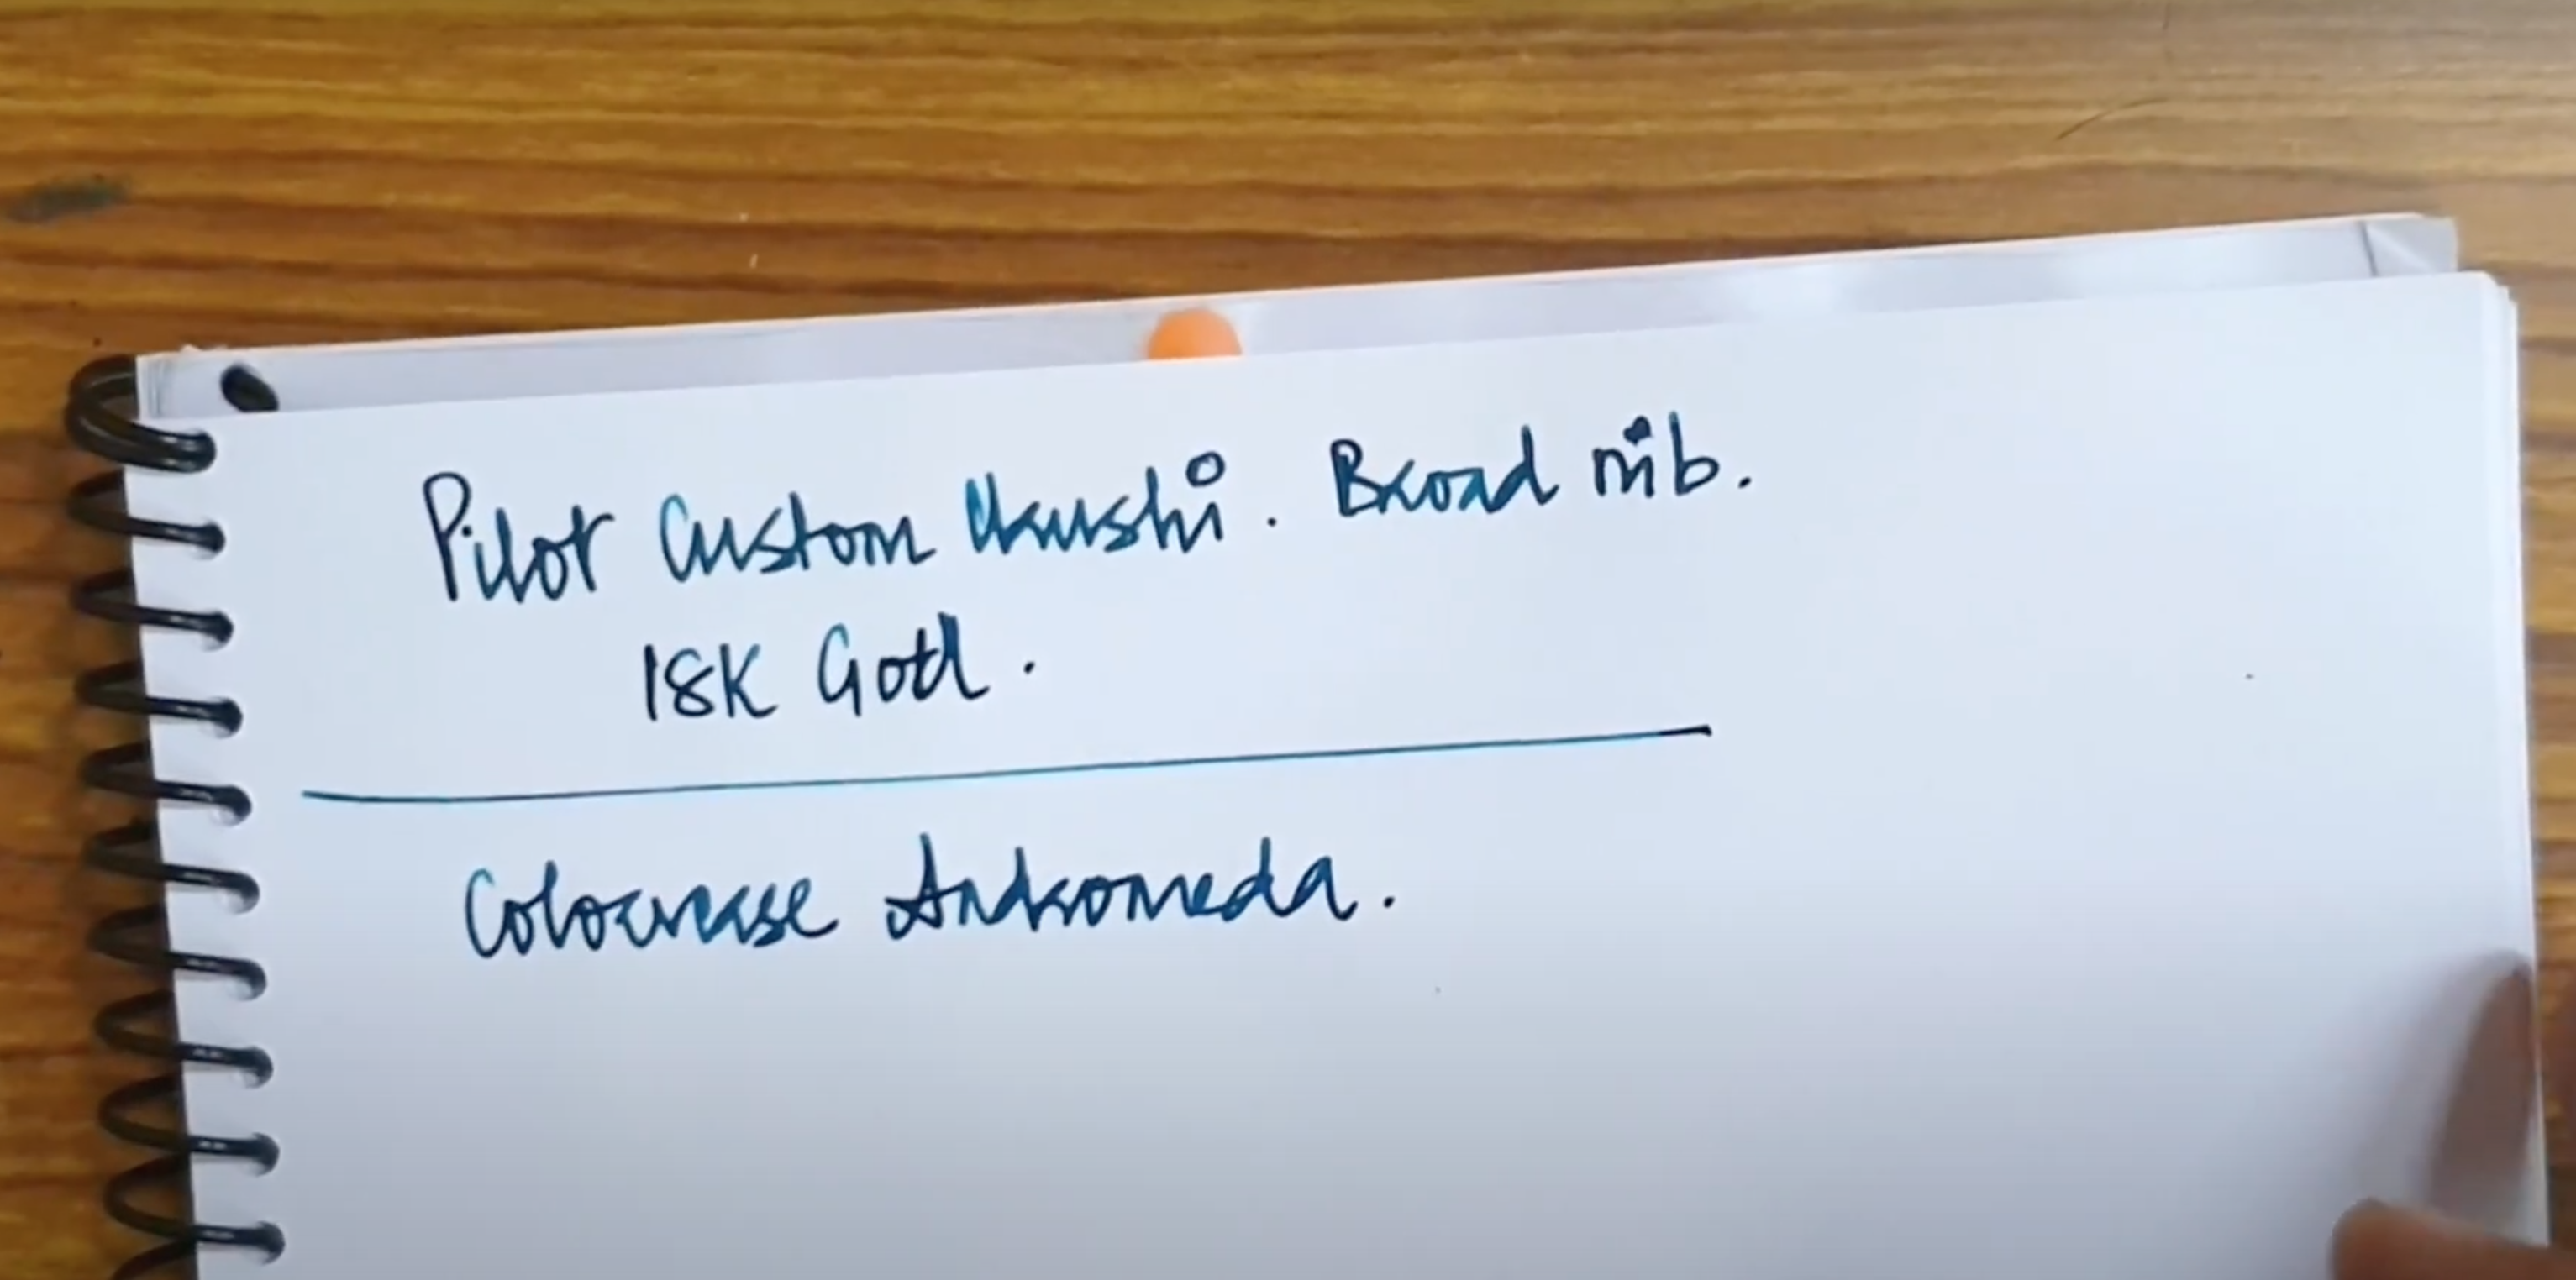 Pilot Custom Urushi. Broad nib.
18K Gold.
Colorverse Andromeda.